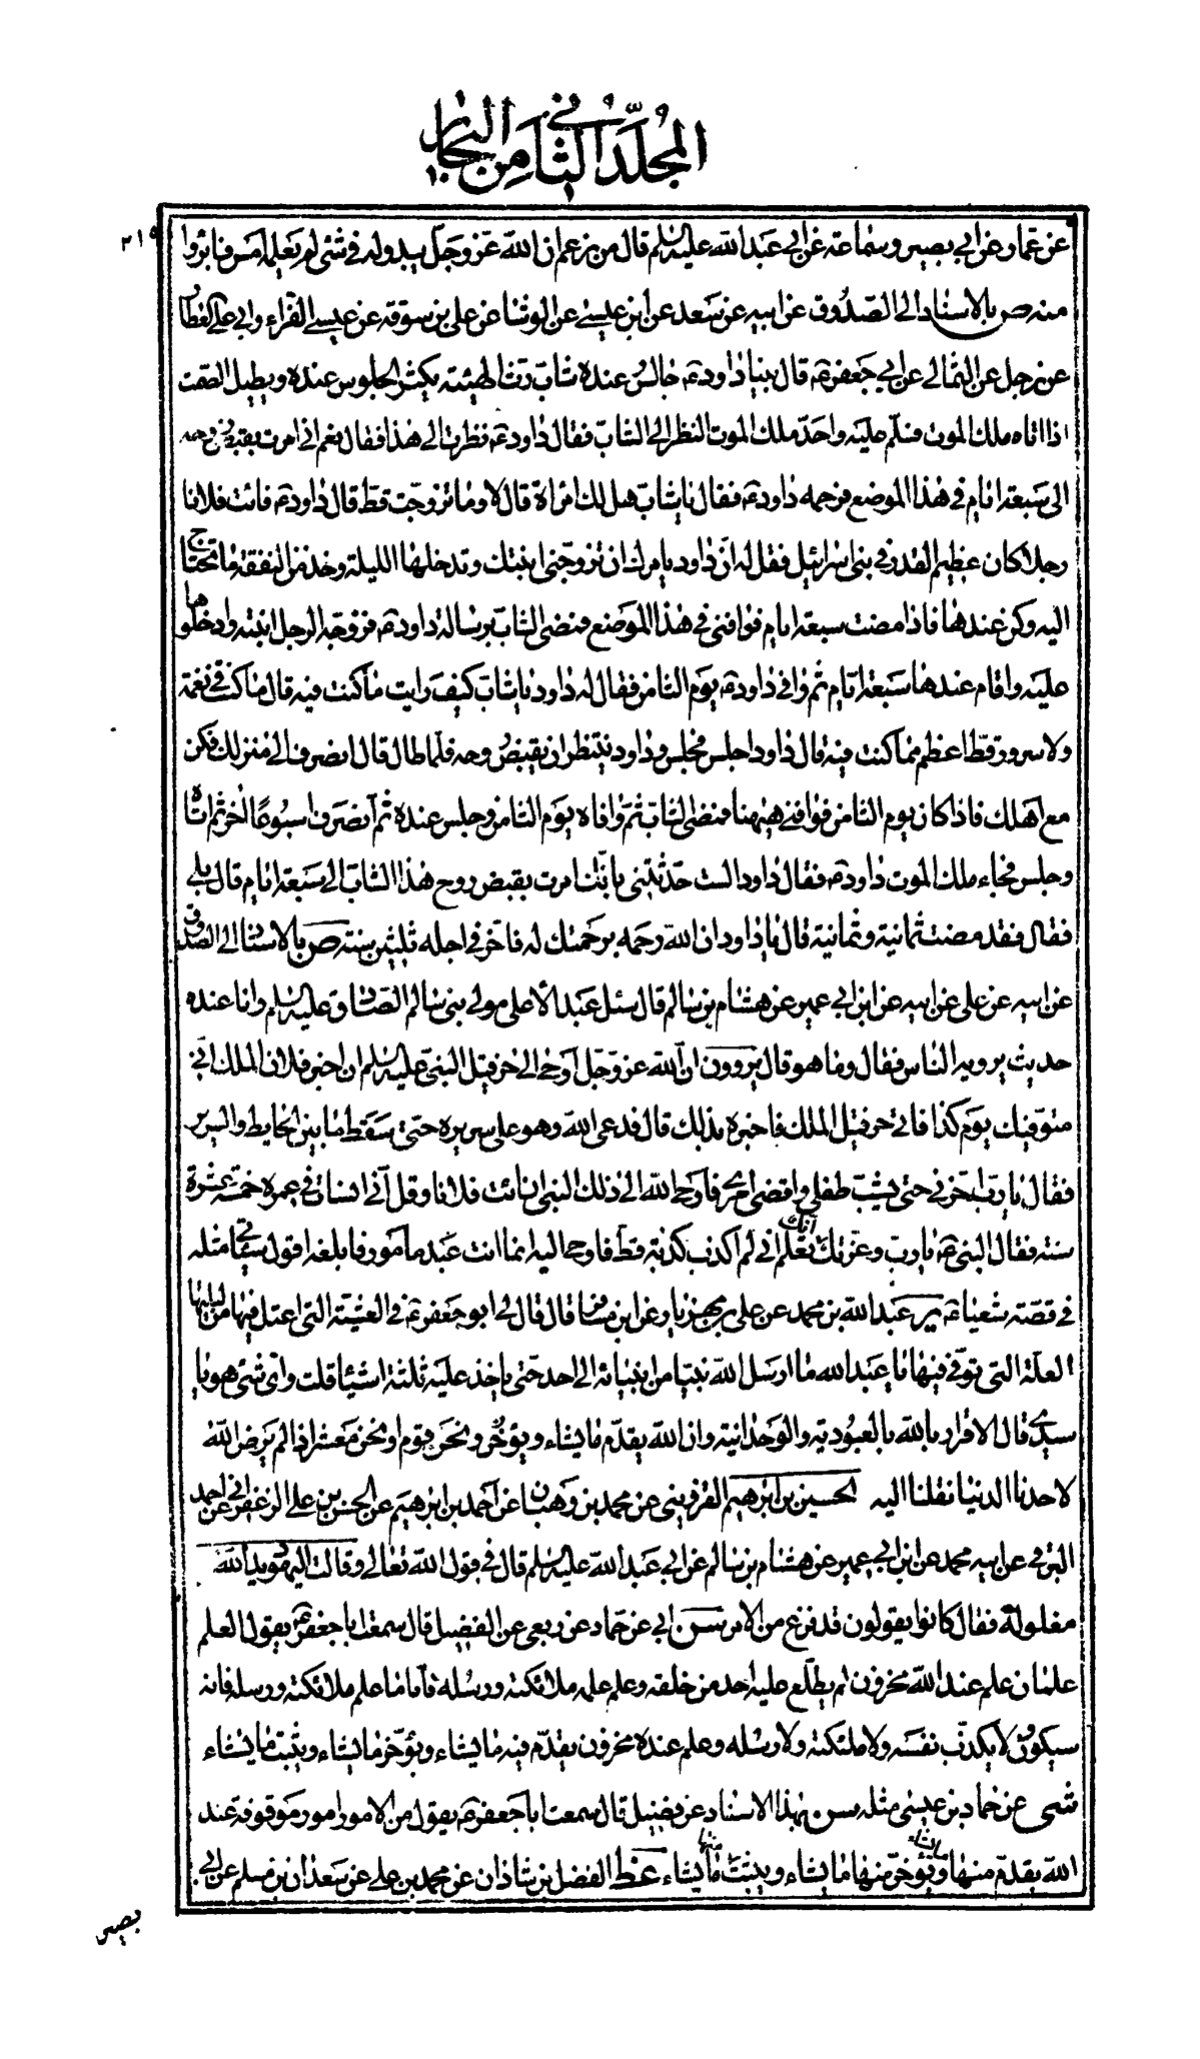 المجلد الثامن في البحار
٢١٩
عن عمار وعن ابي بصير وسماعة عن ابي عبد الله عليه السلم قال من زعم ان الله عز وجل يبدو له في شئ لم يعلمه امس فابرؤا
منه ص بالاسناد الى الصدوق عن ابيه عن سعد عن ابن عيسى عن الوشا عن علي بن سوقة عن عيسى الفراء وابي علي العطار
عن رجل عن الثمالي عن ابي جعفر ع قال بينا داود ع جالس عنده شاب رث الهيئة يكثر الجلوس عنده ويطيل الصمت
اذا اتاه ملك الموت فسلم عليه واحد ملك الموت النظر الى الشاب فقال داود ع نظرت الى هذا فقال نعم اني امرت بقبض روحه
الى سبعة ايام في هذا الموضع فرحمه داود ع فقال يا شاب هل لك امراة قال لا وما تزوجت قط قال داود ع فائت فلانا
رجلا كان عظيم القدر في بني اسرائيل فقل له ان داود يامرك ان تزوجني ابنتك وتدخلها الليلة وخذ من النفقة ما تحتاج
اليه وكن عندها فاذا مضت سبعة ايام فوافني في هذا الموضع فمضى الشاب برسالة داود ع فزوجه الرجل ابنته وادخلوها
عليه واقام عندها سبعة ايام ثم وافى داود ع يوم الثامن فقال له داود يا شاب كيف رايت ما كنت فيه قال ما كنت في نعمة
ولا سرور قط اعظم مما كنت فيه قال داود اجلس فجلس وداود ينتظر ان يقبض روحه فلما طال قال انصرف الى منزلك فكن
مع اهلك فاذا كان يوم الثامن فوافني هيهنا فمضى الشاب ثم وافاه يوم الثامن وجلس عنده ثم انصرف اسبوعا اخر ثم اتاه
وجلس فجاء ملك الموت داود ع فقال داود الست حدثتني بانك امرت بقبض روح هذا الشاب الى سبعة ايام قال بلى
فقال فقد مضت ثمانية وثمانية قال يا داود ان الله رحمه برحمتك له فاخر في اجله ثلثين سنة ص بالاسناد الى الصدوق
عن ابيه عن علي عن ابيه عن ابن ابي عمير عن هشام بن سالم قال سئل عبد الاعلى مولى بني سالم الصادق عليه السلم وانا عنده
حديث يرويه الناس فقال وما هو قال يروون ان الله عز وجل اوحى الى حزقيل النبي عليه السلم ان اخبر فلان الملك اني
متوفيك يوم كذا فاتى حزقيل الملك فاخبره بذلك قال فدعى الله وهو على سريره حتى سقط ما بين الحايط والسرير
فقال يا رب اخرني حتى يشب طفلي واقضي امري فاوحى الله الى ذلك النبي ان ائت فلانا وقل اني انسات في عمره خمسة عشرة
سنة فقال النبي ع يا رب وعزتك انك تعلم اني لم اكذب كذبة قط فاوحى اليه انما انت عبد مامور فابلغه اقول سياتي مثله
في قصة شعيا ع ير عبد الله بن محمد عن علي بن مهزيار وعن ابن مسافر قال قال لي ابو جعفر ع في العشية التي اعتل فيها من ليلتها
العلة التي توفي فيها يا عبد الله ما ارسل الله نبيا من انبيائه الى احد حتى ياخذ عليه ثلثة اشيا قلت واي شئ هو يا
سيدي قال الاقرار بالله بالعبودية والوحدانية وان الله يقدم ما يشاء ويؤخر ونحن قوم او نحن معشر اذا لم يرض الله
لاحدنا الدنيا نقلنا اليه الحسين بن ابرهيم القزويني عن محمد بن وهبان عن احمد بن ابرهيم عن الحسن بن علي الزعفراني عن احمد
البرقي عن ابيه محمد عن ابن ابي عمير عن هشام بن سالم عن ابي عبد الله عليه السلم قال في قول الله تعالى وقالت اليهود يد الله
مغلولة فقال كانوا يقولون قد فرغ من الامر سن ابي عن حماد عن ربعي عن الفضيل قال سمعت ابا جعفر ع يقول العلم
علمان علم عند الله مخزون لم يطلع عليه احد من خلقه وعلم علمه ملائكته ورسله فاما ما علم ملائكته ورسله فانه
سيكون لا يكذب نفسه ولا ملئكته ولا رسله وعلم عنده مخزون يقدم فيه ما يشاء ويؤخر ما يشاء ويثبت ما يشاء
شى عن حماد بن عيسى مثله سن بهذا الاسناد عن فضيل قال سمعت ابا جعفر ع يقول من الامور امور موقوفة عند
الله يقدم منها ما يشاء ويؤخر منها ما يشاء ويثبت منها ما يشاء غط الفضل بن شاذان عن محمد بن علي عن سعدان بن مسلم عن ابي
بصير